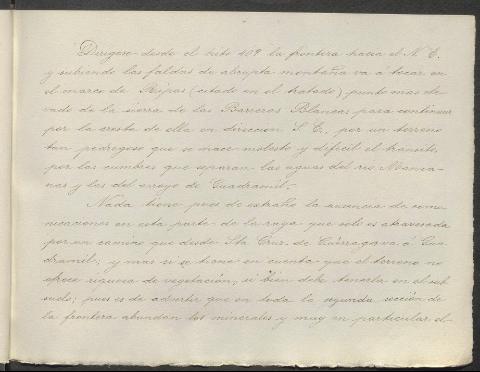 Dirígese desde el hito 409 la frontera hacia el N. E.
y subiendo las faldas de abrupta montaña va á tocar en
el marco de Repas (citado en el tratado) punto mas ele-
vado de la sierra de las Barreras Blancas para continuar
por la cresta de ella en dirección S. E., por un terreno
tan pedregoso que se hace molesto y dificil el tránsito,
por las cumbres que separan las aguas del rio Manza-
nas y los del arroyo de Guadramil.
Nada tiene pues de extraño la ausencia de comu-
nicaciones en esta parte de la raya que solo es atravesada
por un camino que desde Sta Cruz de va á Gua-
dramil; y mas si se tiene en cuenta que el terreno no
ofrece riqueza de vegetación, si bien debe tenerla en el sub-
suelo; pues es de advertir que en toda la segunda sección de
la frontera abundan los minerales y muy en particular el